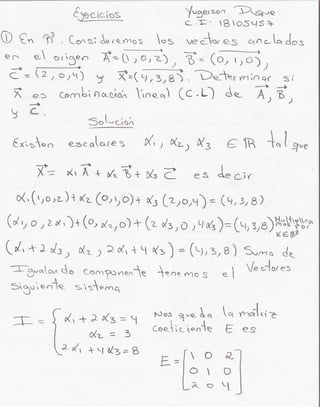 Ejercicios
Yugerson Duque
C.I: 18105457
① En R³. Consideremos los vectores anclados
en el origen A⃗=(1,0,2), B⃗=(0,1,0),
C⃗=(2,0,4) y X⃗=(4,3,8). Determinar si
X⃗ es combinación lineal (C.L) de A⃗, B⃗,
y C⃗.
Solución
Existen escalares α₁, α₂, α₃ ∈ R tal que
X⃗ = α₁ A⃗ + α₂ B⃗ + α₃ C⃗ es decir
α₁(1,0,2)+α₂(0,1,0)+α₃(2,0,4)=(4,3,8)
(α₁,0,2α₁)+(0,α₂,0)+(2α₃,0,4α₃)=(4,3,8) Multiplicamos por α∈R
(α₁+2α₃, α₂, 2α₁+4α₃)=(4,3,8) Suma de Vectores
Igualando componente tenemos el
siguiente sistema
I = { α₁+2α₃=4
α₂=3
2α₁+4α₃=8
Nos queda la matriz
coeficiente E es
E = [1 0 2
0 1 0
2 0 4]